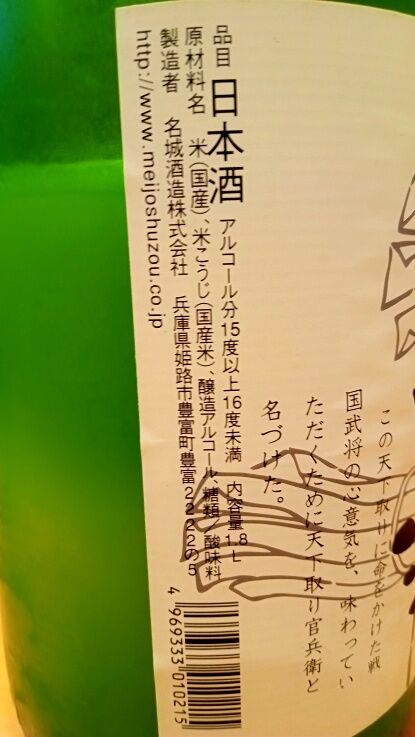 この天下取りに命をかけた戦
国武将の心意気を、味わってい
ただくために天下取り官兵衛と
名づけた。
品目 日本酒 アルコール分15度以上16度未満 内容量1.8L
原材料名 米(国産)、米こうじ(国産米)、醸造アルコール、糖類/酸味料
製造者 名城酒造株式会社 兵庫県姫路市豊富町豊富2222の5
http://www.meijoshuzou.co.jp
4 969333 010215